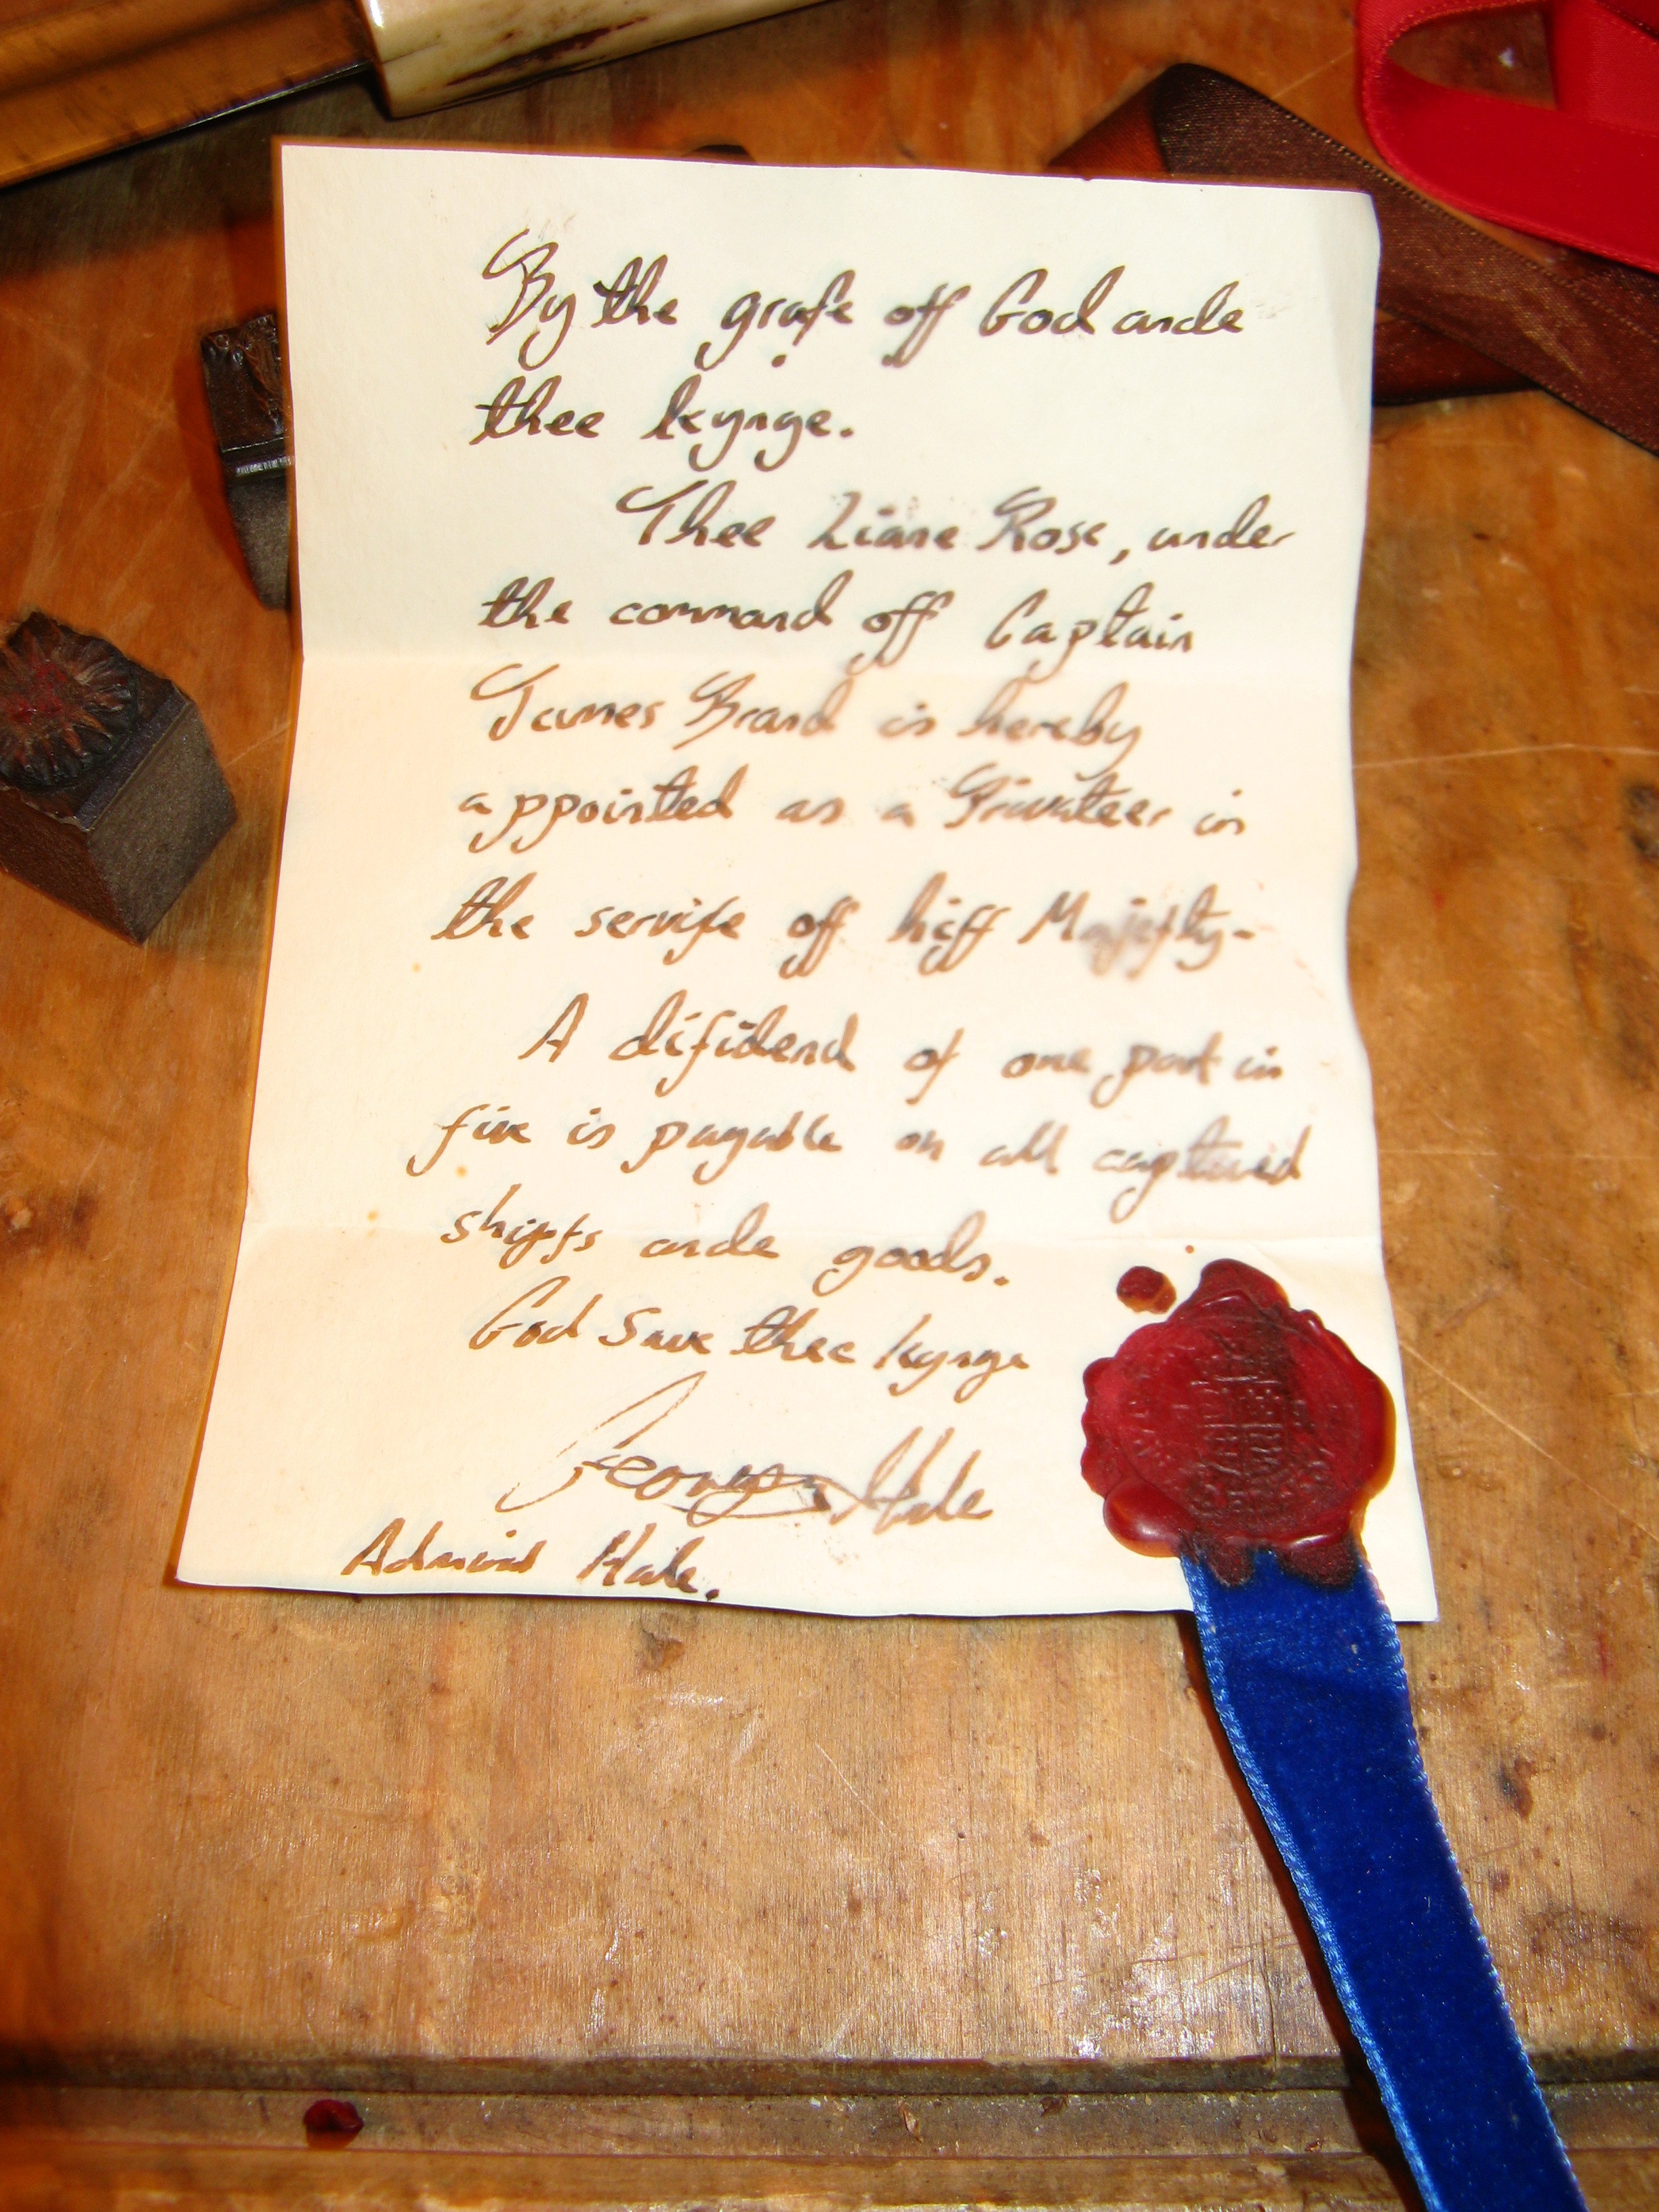 By the grafe off God ande
thee kynge.
Thee Liane Rose, under
the command off Captain
James Brand is hereby
appointed as a Privateer in
the servife off hiff Majefty.
A difidend of one part in
five is payable on all captured
shipfs ande goods.
God save thee kynge
George Hale
Admiral Hale.